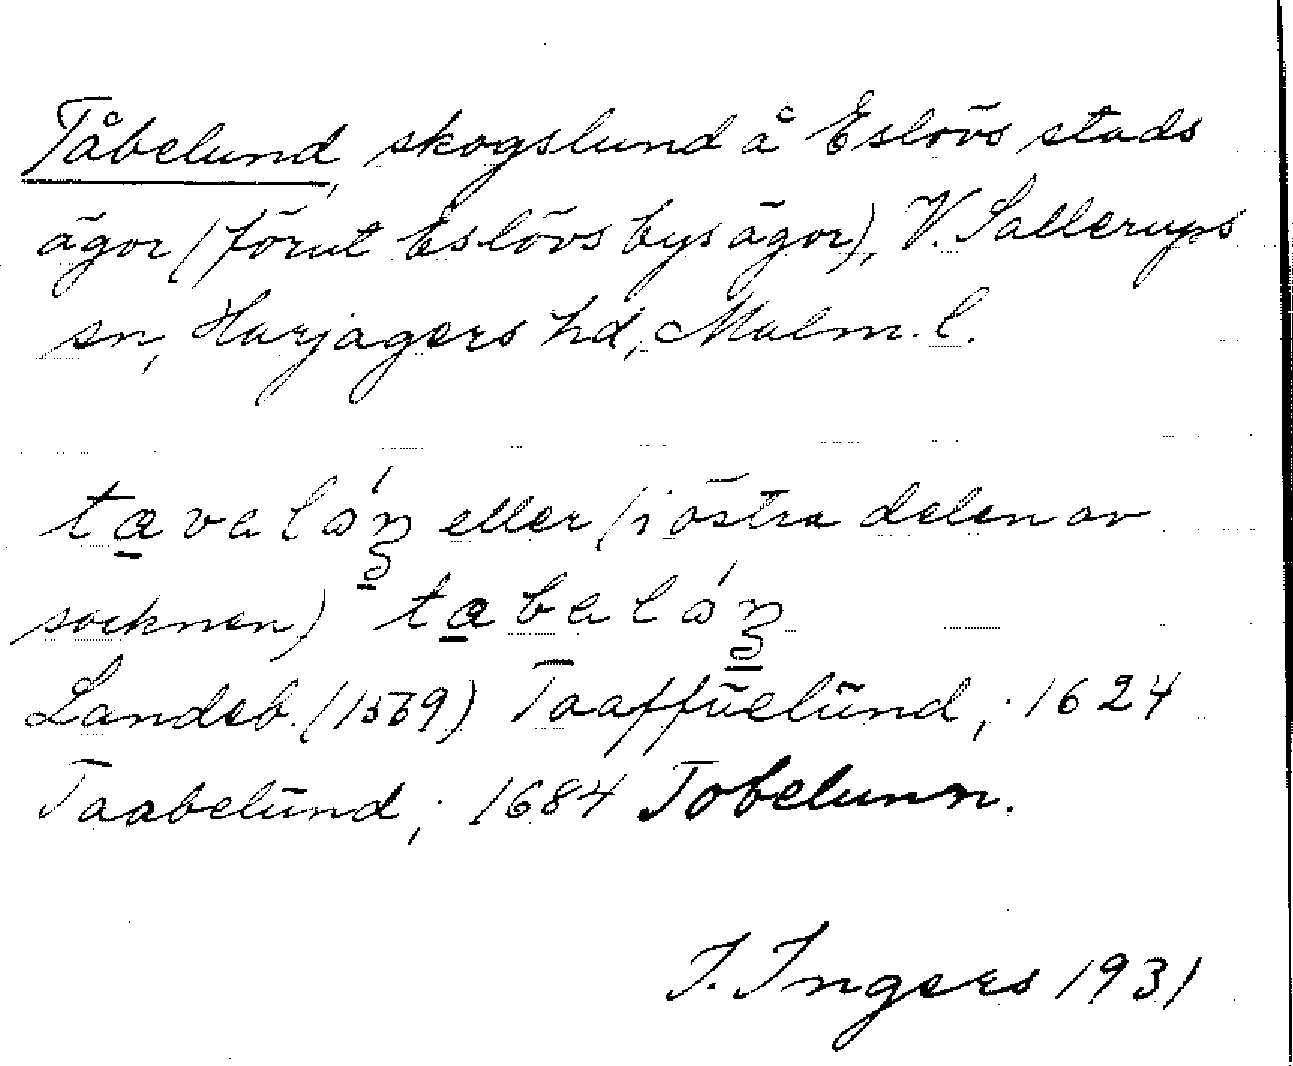 Tåbelund, skogslund å Eslövs stads
ägor (förut Eslövs bys ägor), V. Sallerups
sn, Harjagers hd, Malm. l.
tavalón eller (i östra delen av
socknen) tabalón
Landeb. (1569) Taaffüelünd; 1624
Taabelünd; 1684 Tobelunn.
I. Ingers 1931